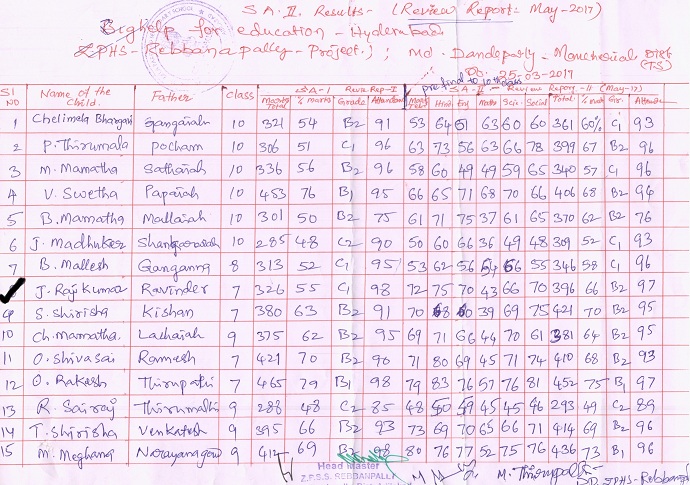 S A. II. Results - (Review Report: May-2017)
Bighelp for education - Hyderabad.
ZPHS-Rebbanapally-Project.); Md. Dandepally - Mancherial Dist (TS)
Db: 25-03-2017
Sl NO Name of the Child. Father Class SA-I Reva.Rep-I SA-II- Review Report-II (May-17)
Marks Total % Marks Grade Hindi Eng Maths Scie- Social Total % Gr.
1 Chelimala Bhargavi Gangaiah 10 321 54 B2 91 53 64 51 63 60 60 361 60% C1 93
2 P. Thirumala Pocham 10 306 51 C1 96 63 73 56 63 66 78 399 67 B2 96
3 M. Mamatha Sathaiah 10 336 56 B2 96 58 60 49 49 59 65 340 57 C1 96
4 V. Swetha Papaiah 10 453 76 B1 95 66 65 71 68 70 66 406 68 B2 94
5 B. Mamatha Mallaiah 10 301 50 B2 75 61 71 75 37 61 65 370 62 B2 76
6 J. Madhuker 10 285 48 C2 90 50 60 66 36 49 48 309 52 C1 93
7 B. Mallesh Ganganna 8 313 52 C1 95 53 62 56 54 66 55 346 58 C1 96
J. Raj Kumar Ravinder 7 326 55 C1 98 72 75 70 43 66 70 396 66 B2 97
9 S. Shirisha Kishan 7 380 63 B2 91 70 68 60 39 69 75 421 70 B2 95
10 Ch. Mamatha. Lachaiah 9 375 62 B2 95 69 71 66 44 70 61 381 64 B2 95
11 O. Shivasai Ramesh 7 421 70 B2 90 71 80 69 45 71 74 410 68 B2 93
12 O. Rakesh Thirupathi 7 465 79 B1 98 79 83 76 57 76 81 452 75 B1 97
13 R. Sairaj Thirumalli 9 288 48 C2 85 48 50 49 45 45 46 293 49 C2 89
14 T. Shirisha Venkatesh 9 395 66 B2 93 73 69 70 65 66 71 414 69 B2 96
15 M. Meghana Narayanagoud 9 412 69 B2 98 80 76 77 52 75 76 436 73 B1 96
Head Master
Z.P.S.S. REBBANPALLY
M. Thirupathi
ZPHS-Rebbanpa